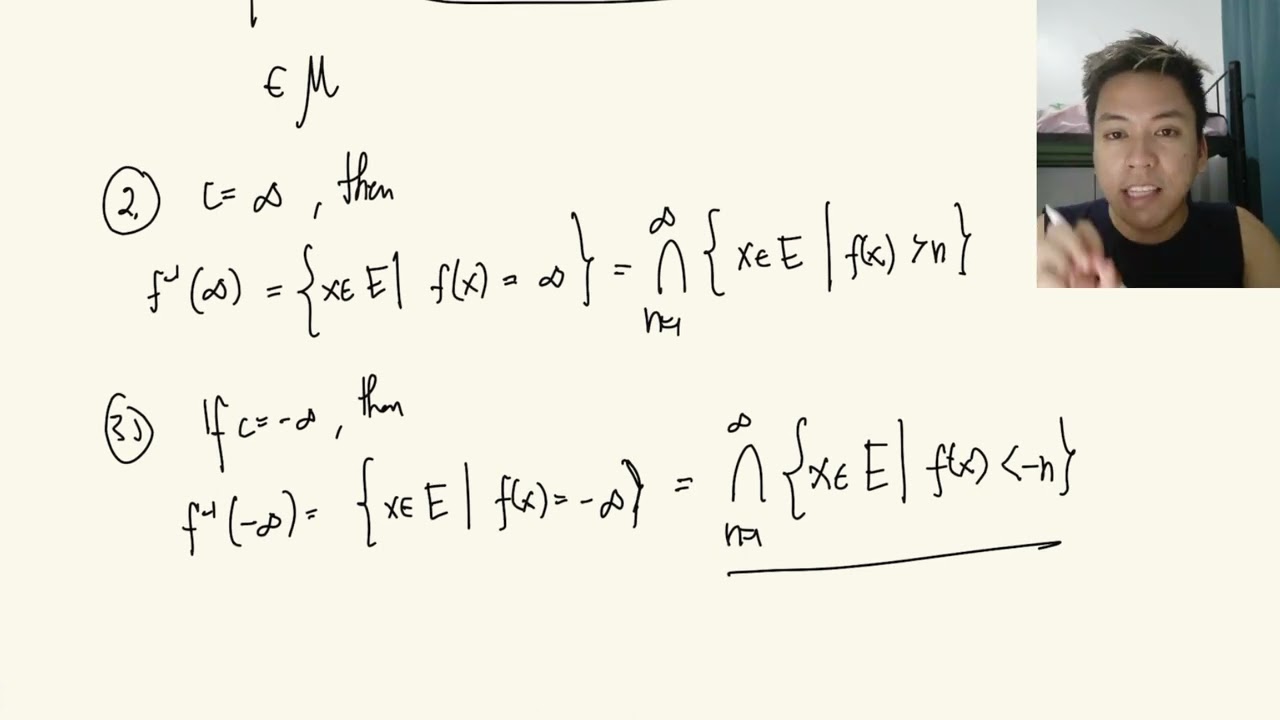 ∈ M
2. c = ∞, then
f⁻¹(∞) = {x ∈ E | f(x) = ∞} = ⋂_{n=1}^{∞} {x ∈ E | f(x) > n}
3.) If c = -∞, then
f⁻¹(-∞) = {x ∈ E | f(x) = -∞} = ⋂_{n=1}^{∞} {x ∈ E | f(x) < -n}